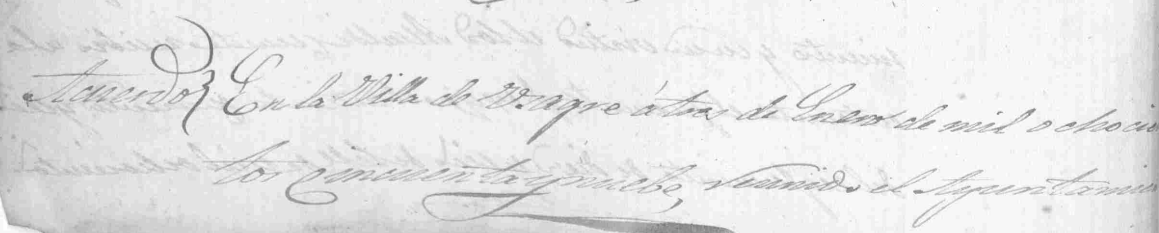 Acuerdo} En la Villa de Usagre á tres de Enero de mil ochocien
tos cincuenta y nuebe, reunido el Ayuntamien